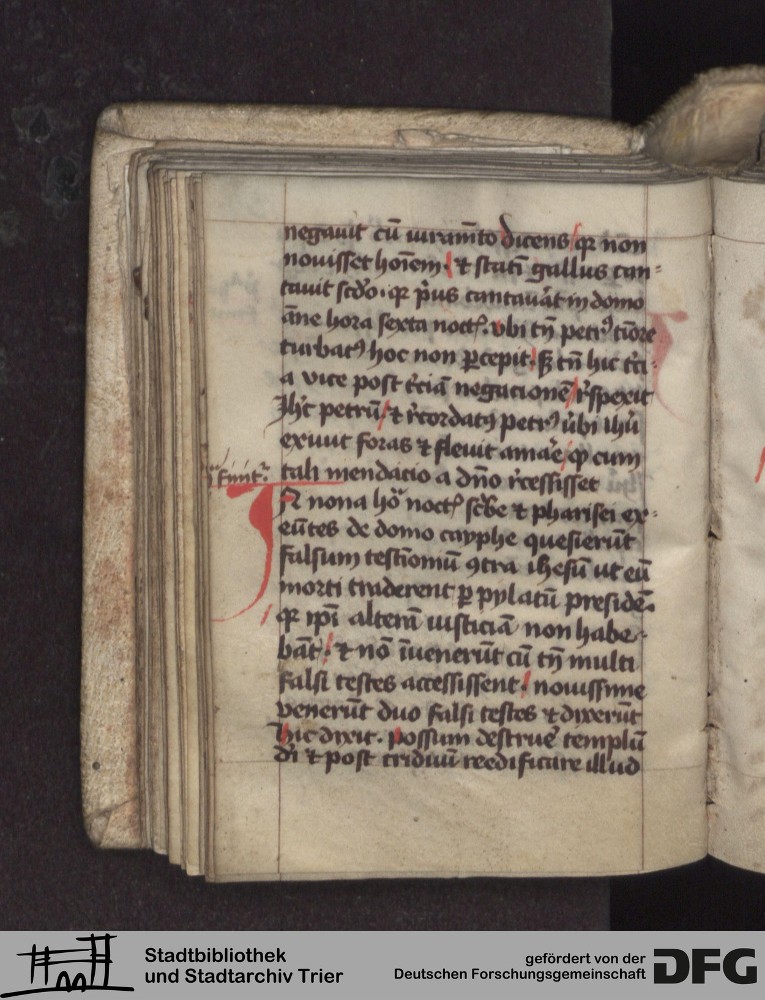 negauit cū iuram̄to dicens qꝛ non
nouisset hoīem · ⁊ statī gallus can⸗
tauit scd̓o · qꝛ p̓us cantau̓at in domo
āne hora sexta noct̕ · vbi tn̄ petrꝰ tīore
turbatꝰ hoc non ꝑcepit · sꝫ tn̄ hic tc̓i⸗
a vice post tc̓iā negacionē r̓spexit
Ihc̄ petrū ⁊ r̓cordatꝰ petrꝰ ūbi ihū
exiuit foras ⁊ fleuit amar̓e qꝛ cum
tali mendacio a dn̄o r̓cessisset
In nona hōr noct̕ sc̓be ⁊ pharisei ex⸗
eūtes de domo cayphe quesierūt
falsum testīoniū ꝯtra ihesū ut eū
morti traderent ꝑ pylatū presidē
qꝛ ip̄i alterā iusticiā non habe⸗
bāt · ⁊ nō īuenerūt cū tn̄ multi
falsi testes accessissent · nouissime
venerūt duo falsi testes ⁊ dixerūt
hic dixit · possum destruer̓ templū
dī ⁊ post triduū reedificare illud
Stadtbibliothek
und Stadtarchiv Trier
gefördert von der
Deutschen Forschungsgemeinschaft
DFG